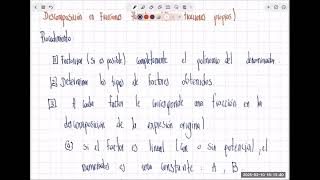 Descomposición en fracciones fracciones propias)
Procedimiento
1 Factorizar (si es posible) completamente el polinomio del denominador.
2 Determinar los tipos de factores obtenidos.
3 A cada factor le corresponde una fracción en la
descomposición de la expresión original
a si el factor es lineal (con o sin potencia), el
numerador es una constante: A, B